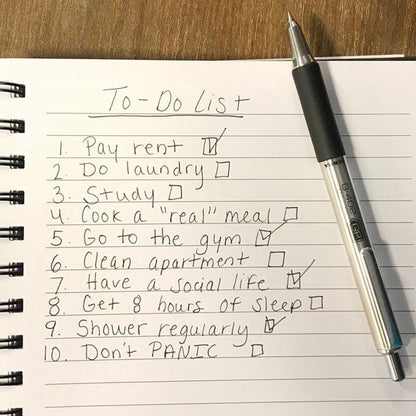 To-Do List
1. Pay rent
2. Do laundry
3. Study
4. Cook a "real" meal
5. Go to the gym
6. Clean apartment
7. Have a social life
8. Get 8 hours of sleep
9. Shower regularly
10. Don't PANIC